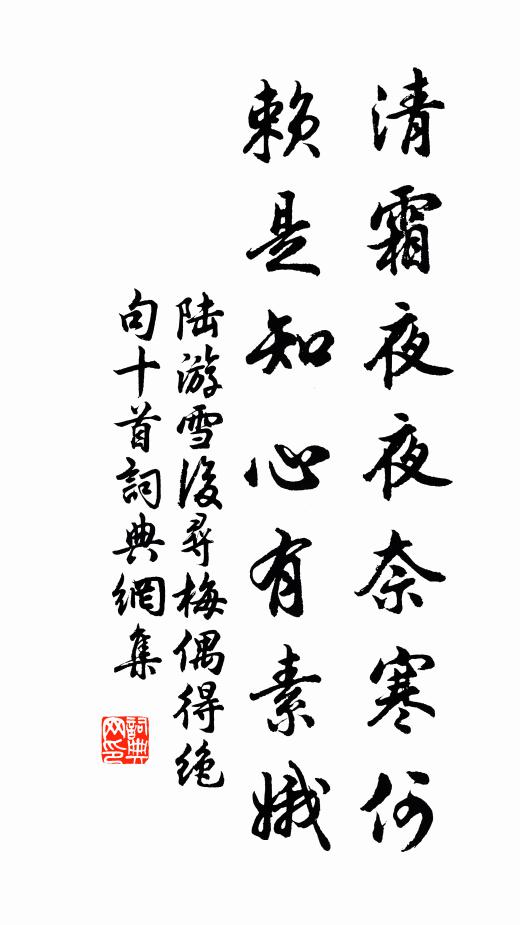 清霜夜夜奈寒何
赖是知心有素娥
陆游雪後尋梅偶得绝
句十首詞典網集
詞典网印